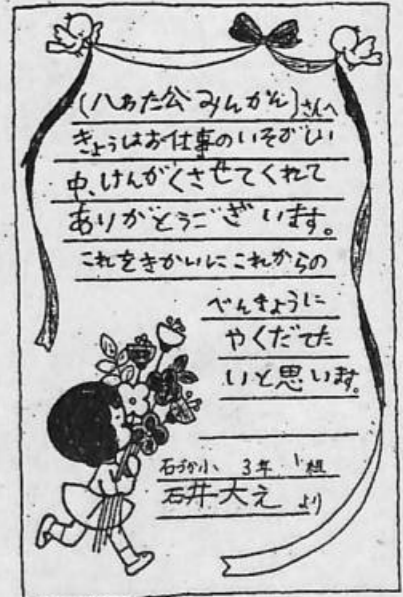 (八わた公みんかん)さんへ
きょうはお仕事のいそがしい
中、けんがくさせてくれて
ありがとうございます。
これをきかいにこれからの
べんきょうに
やくだてた
いと思います。
石づか小 3年 1組
石井大え より